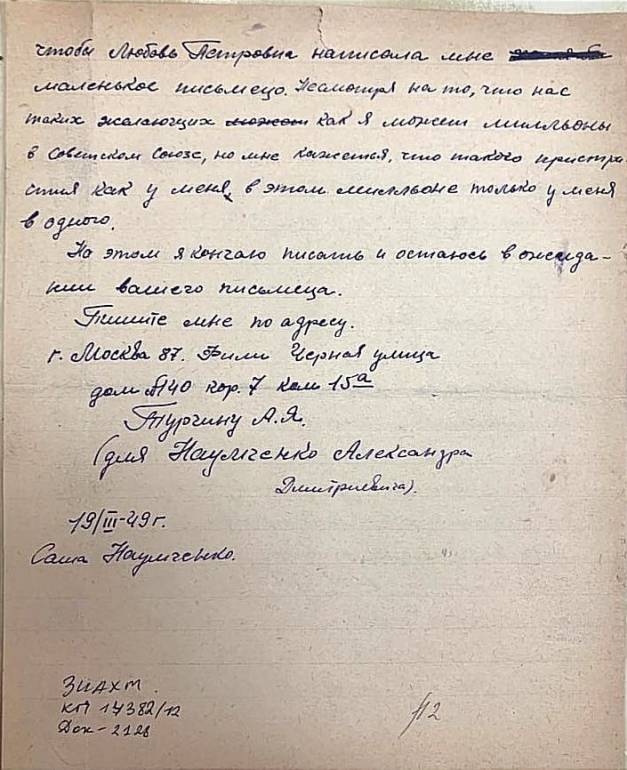 чтобы Любовь Петровна написала мне
маленькое письмецо. Несмотря на то, что нас
таких желающих может как я может милльоны
в Советском Союзе, но мне кажется, что такого пристра-
стия как у меня, в этом милльоне только у меня
в одного.
На этом я кончаю писать и остаюсь в ожида-
нии вашего письмеца.
Пишите мне по адресу.
г. Москва 87. Фили Черная улица
дом №140 кор. 7 ком 15а
Тургину А.Я.
(для Наумченко Александра
Дмитриевича).
19/III-49г.
Саша Наумченко.
ЗИАХМ.
КП 17382/12
Док-2128